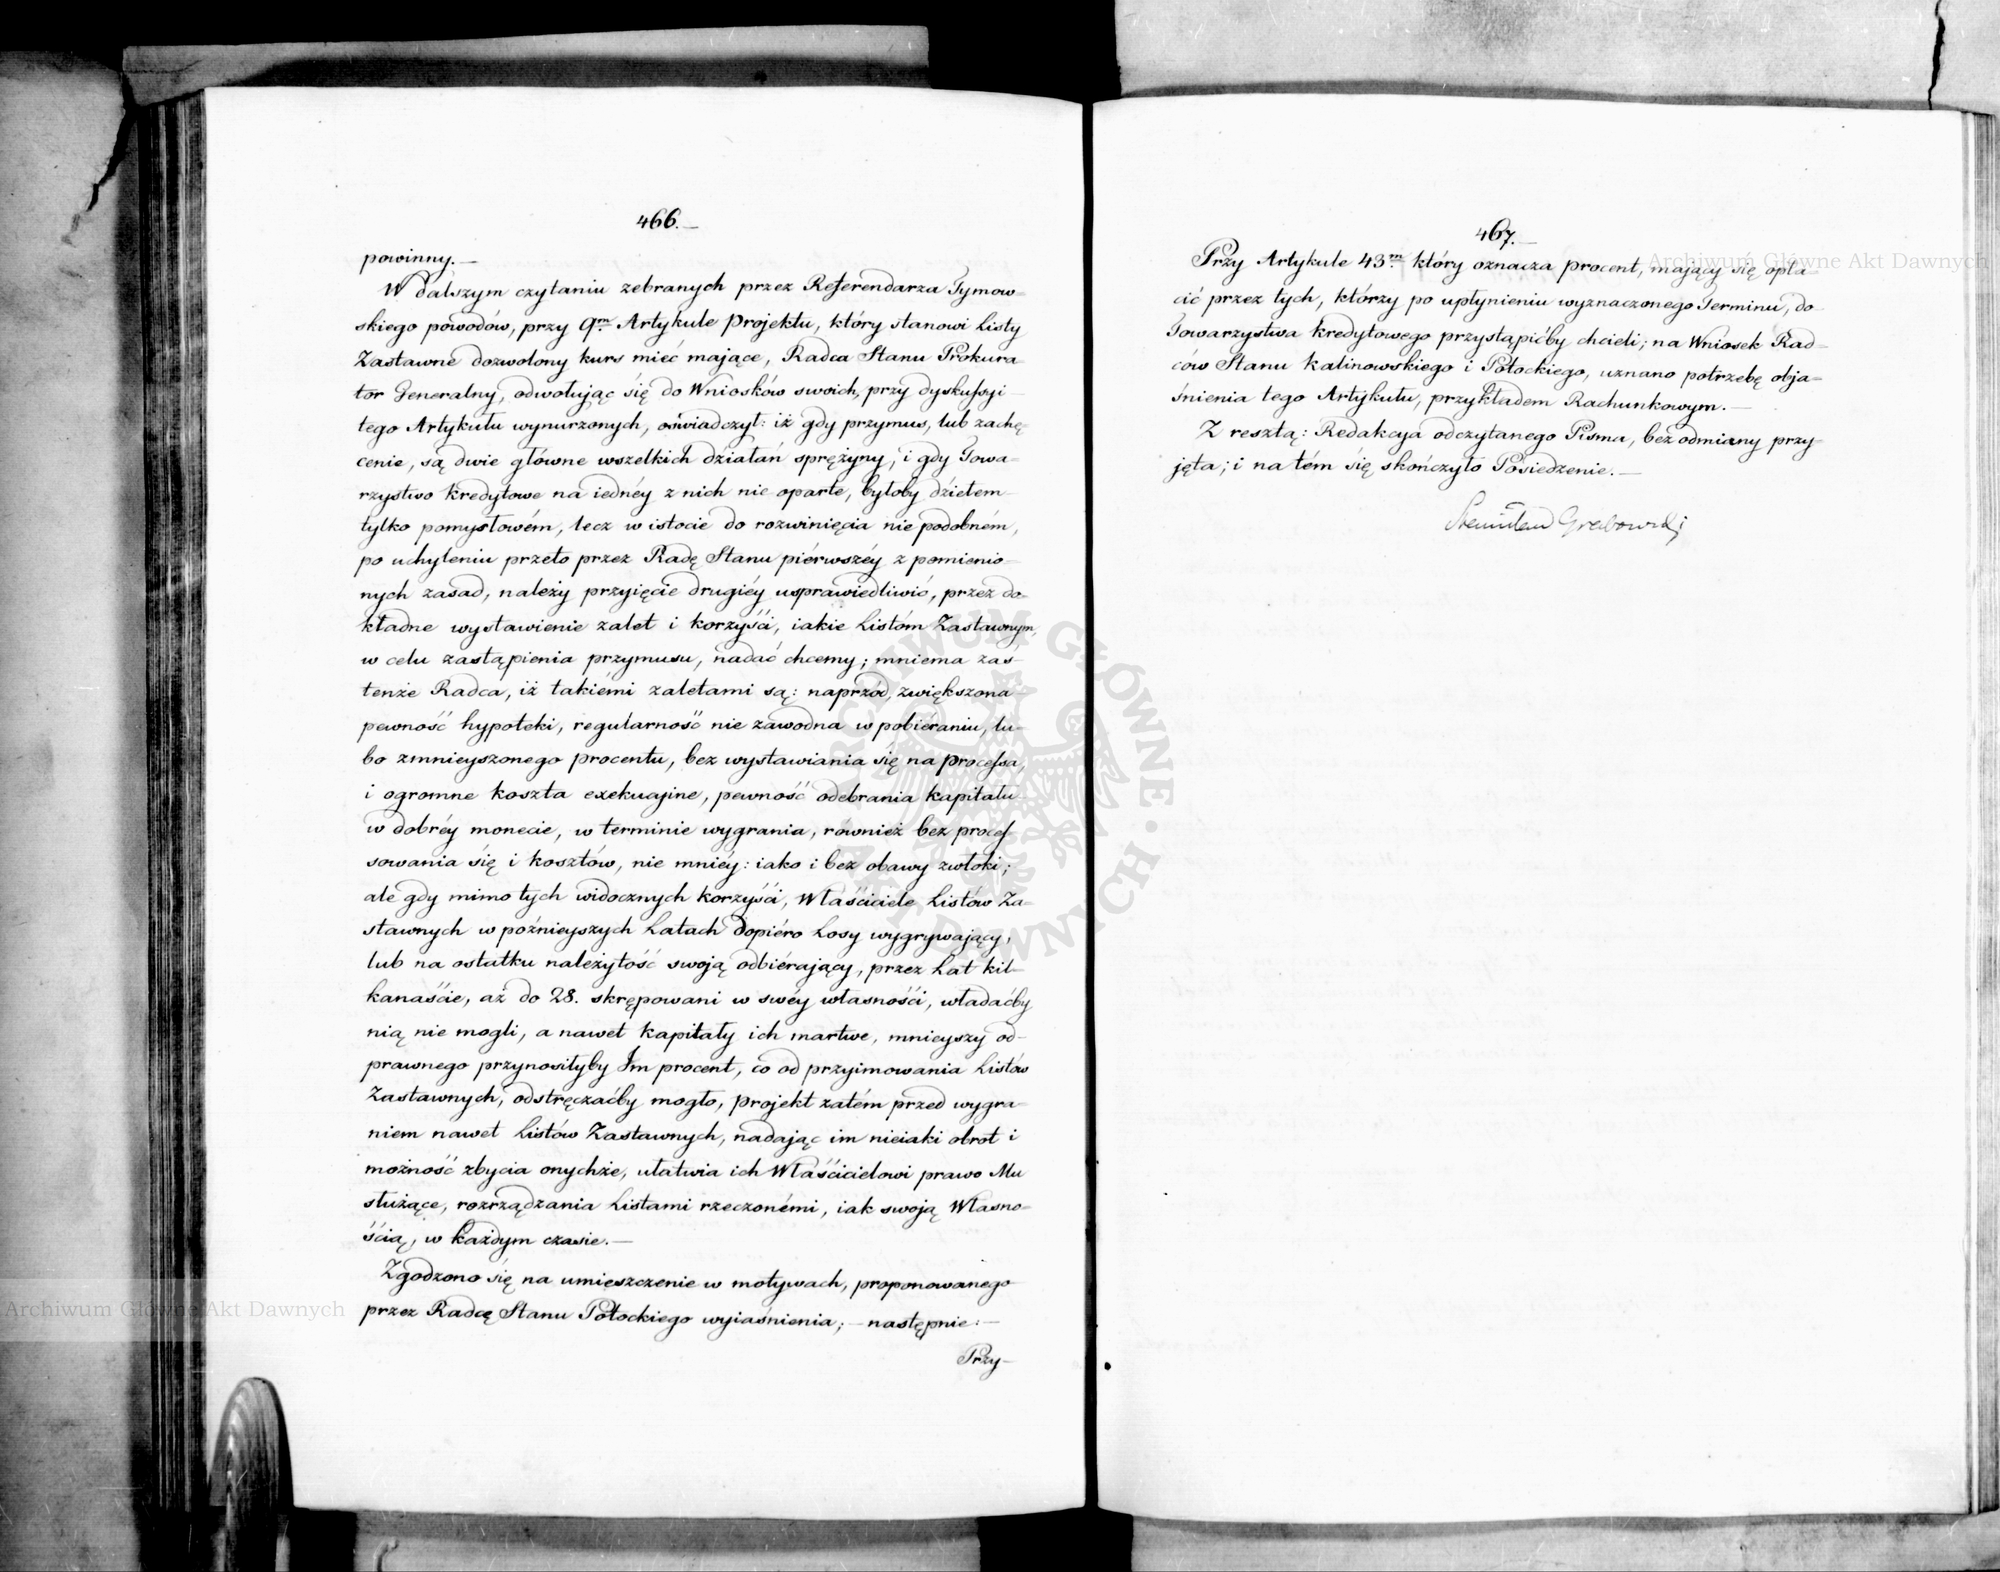 466.—
powinny.—
W dalszym czytaniu zebranych przez Referendarza Tymow-
skiego powodów, przy 9m Artykule Projektu, który stanowi Listy
Zastawne dozwolony kurs mieć mające, Radca Stanu Prokura-
tor Generalny, odwołując się do Wniosków swoich, przy dyskussyi
tego Artykułu wynurzonych, oświadczył: iż gdy przymus, lub zachę-
cenie, są dwie główne wszelkich działań sprężyny, i gdy Towa-
rzystwo kredytowe na iednéy z nich nie oparte, byłoby dziełem
tylko pomysłowém, lecz w istocie do rozwinięcia nie podobném,
po uchyleniu przeto przez Radę Stanu piérwszéy z pomienio-
nych zasad, należy przyięcie drugiéy usprawiedliwić, przez do-
kładne wystawienie zalet i korzyści, iakie Listóm Zastawnym,
w celu zastąpienia przymusu, nadać chcemy; mniema zaś
tenże Radca, iż takiémi zaletami są: naprzód, zwiększona
pewność hypoteki, regularność nie zawodna w pobiéraniu, lu-
bo zmnieyszonego procentu, bez wystawiania się na processa,
i ogromne koszta exekucyine, pewność odebrania kapitału
w dobréy monecie, w terminie wygrania, również bez proces-
sowania się i kosztów, nie mniéy: iako i bez obawy zwłoki;
ale gdy mimo tych widocznych korzyści, Właściciele Listów Za-
stawnych w poźnieyszych Latach dopiéro Losy wygrywający,
lub na ostatku należytość swoją odbiérający, przez Lat kil-
kanaście, aż do 28. skrępowani w swéy własności, władaćby
nią nie mogli, a nawet kapitały ich martwe, mnieyszy od
prawnego przynosiłyby Im procent, co od przyimowania Listów
Zastawnych, odstręczaćby mogło, projekt zatém przed wygra-
niem nawet Listów Zastawnych, nadając im nieiaki obrot i
możność zbycia onychże, ułatwia ich Właścicielowi prawo Mu
służące, rozrządzania Listami rzeczonémi, iak swoją Własno-
ścią, w każdym czasie.—
Zgodzono się na umieszczenie w motywach, proponowanego
przez Radcę Stanu Potockiego wyiaśnienia;— następnie:—
Przy—
467.—
Przy Artykule 43m który oznacza procent, mający się opła-
cić przez tych, którzy po upłynieniu wyznaczonego Terminu, do
Towarzystwa kredytowego przystąpićby chcieli; na Wniosek Rad-
ców Stanu Kalinowskiego i Potockiego, uznano potrzebę obja-
śnienia tego Artykułu, przykładem Rachunkowym.—
Z resztą: Redakcya odczytanego Pisma, bez odmiany przy-
jęta; i na tém się skończyło Posiedzenie.—
Stanisław Grabowski
Archiwum Główne Akt Dawnych
Archiwum Główne Akt Dawnych
ARCHIWUM GŁÓWNE AKT DAWNYCH